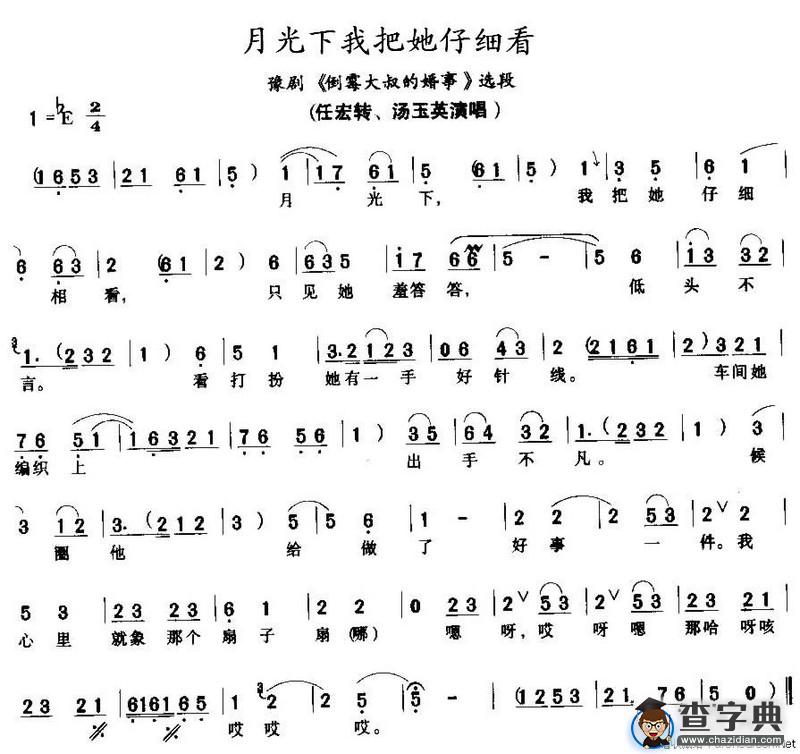 月光下我把她仔细看
豫剧《倒霉大叔的婚事》选段
(任宏转、汤玉英演唱)
1=♭E 2/4
(1653 | 21 61 | 5) 1 | 17 61 | 5 (61 | 5) 1 | 3 5 | 6 1 |
月 光 下, 我 把 她 仔 细
6 63 | 2 (61 | 2) 6 | 6335 | 17 66 | 5 - | 5 6 | 13 32 |
相 看, 只 见 她 羞答 答, 低 头 不
1.(232 | 1) 6 | 5 1 | 3.2123 | 06 43 | 2 (2161 | 2)321 |
言。 看 打 扮 她有一手 好 针 线。 车间她
76 51 | 16321 | 76 56 | 1) 35 | 64 32 | 1.(232 | 1) 3 |
编织 上 出 手 不 凡。 候
3 12 | 3.(212 | 3) 5 | 5 6 | 1 - | 2 2 | 2 53 | 2∨2 |
圈 他 给 做 了 好 事 一 件。我
5 3 | 23 23 | 6 1 | 2 2 | 0 23 | 2∨53 | 23 53 | 2 32 |
心 里 就象 那个 扇 子 扇(哪) 嗯 呀,哎 呀嗯 那哈 呀咳
23 21 | 6161 65 | 1 2 | 2 5 | 5 - | (1253 | 21. 76 | 5 0) ‖
哎 哎 哎。
查字典
www.chazidian.com